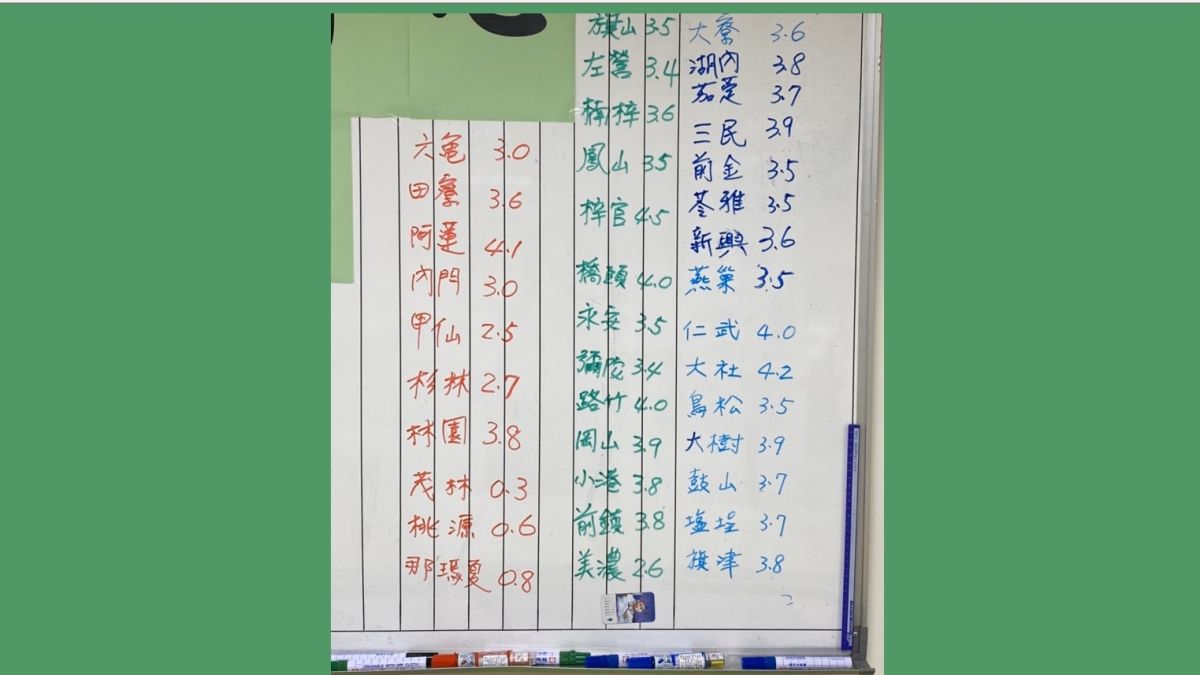 六龜 3.0
田寮 3.6
阿蓮 4.1
內門 3.0
甲仙 2.5
杉林 2.7
林園 3.8
茂林 0.3
桃源 0.6
那瑪夏 0.8
旗山 3.5
左營 3.4
楠梓 3.6
鳳山 3.5
梓官 4.5
橋頭 4.0
永安 3.5
彌陀 3.4
路竹 4.0
岡山 3.9
小港 3.8
前鎮 3.8
美濃 2.6
大寮 3.6
湖內 3.8
茄萣 3.7
三民 3.9
前金 3.5
苓雅 3.5
新興 3.6
燕巢 3.5
仁武 4.0
大社 4.2
鳥松 3.5
大樹 3.9
鼓山 3.7
塩埕 3.7
旗津 3.8